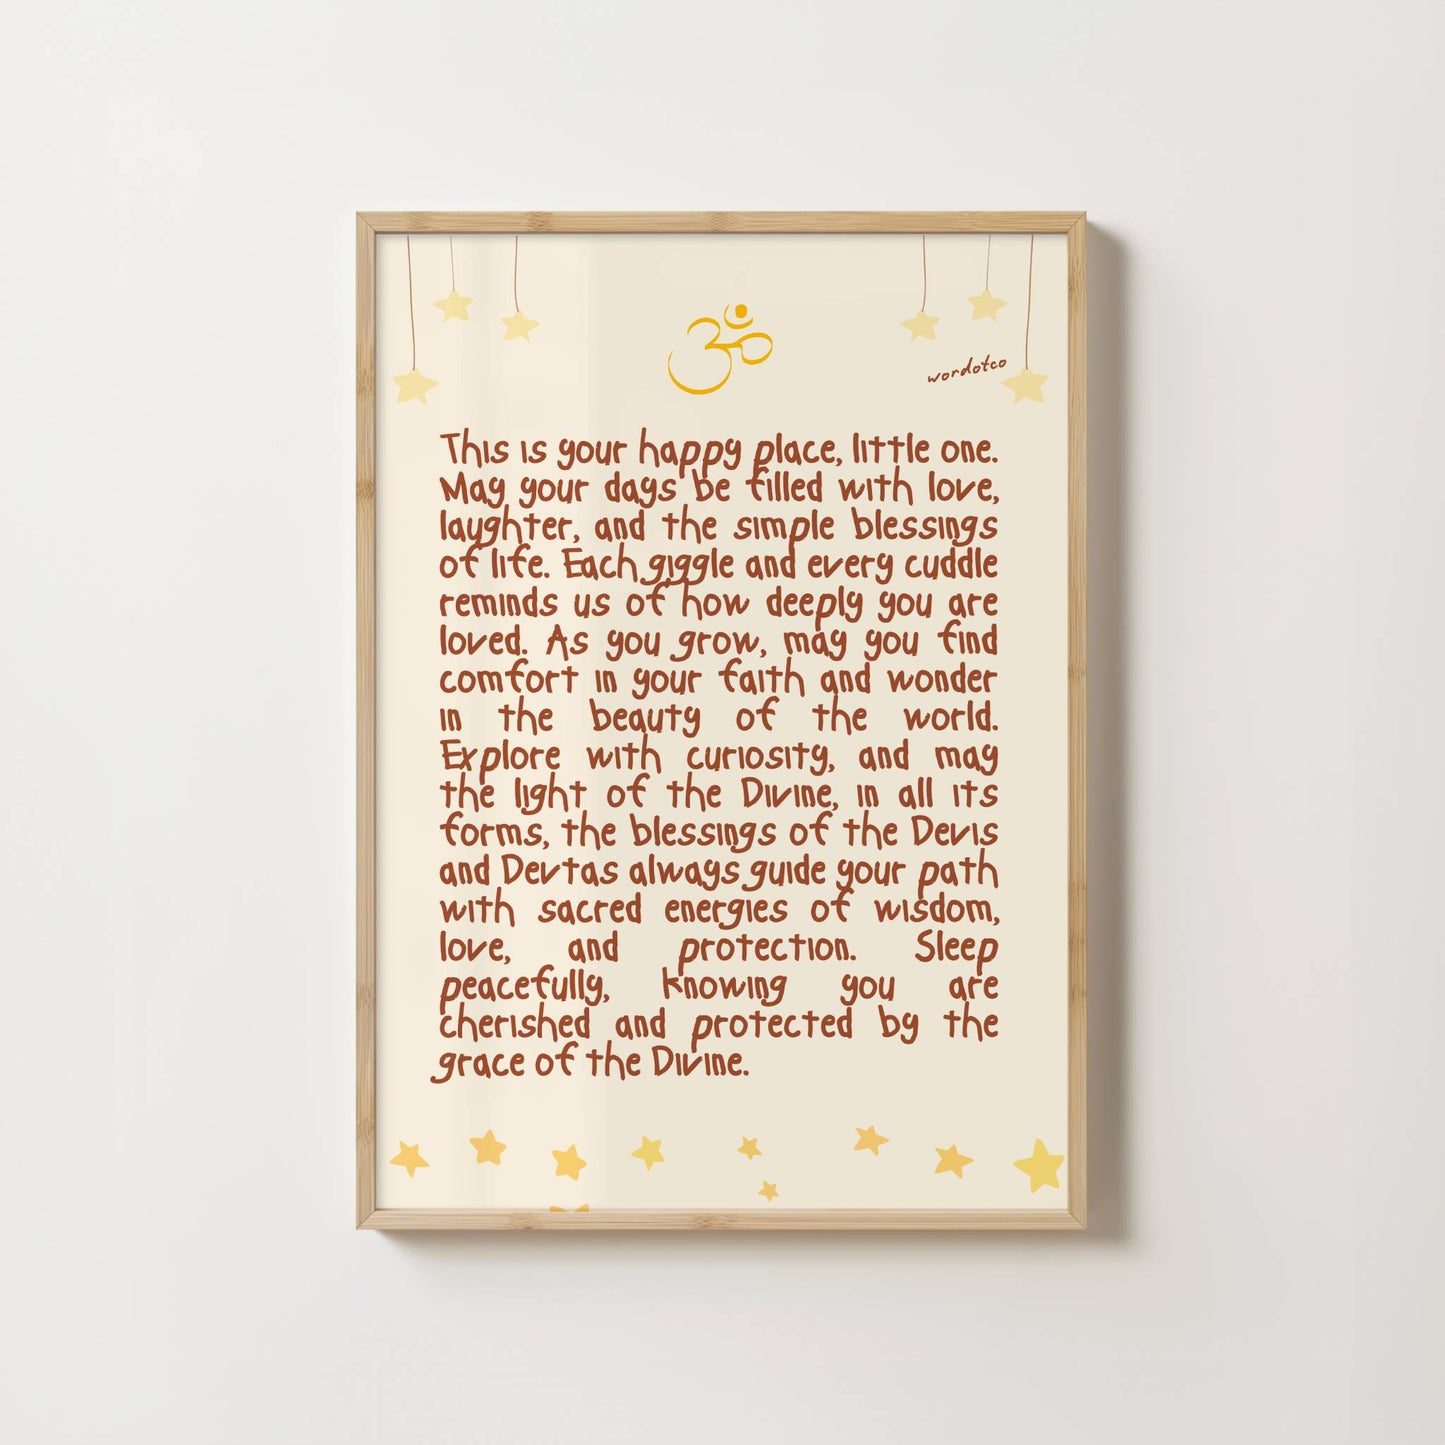 ॐ
wordotco
This is your happy place, little one.
May your days be filled with love,
laughter, and the simple blessings
of life. Each giggle and every cuddle
reminds us of how deeply you are
loved. As you grow, may you find
comfort in your faith and wonder
in the beauty of the world.
Explore with curiosity, and may
the light of the Divine, in all its
forms, the blessings of the Devis
and Devtas always guide your path
with sacred energies of wisdom,
love, and protection. Sleep
peacefully, knowing you are
cherished and protected by the
grace of the Divine.